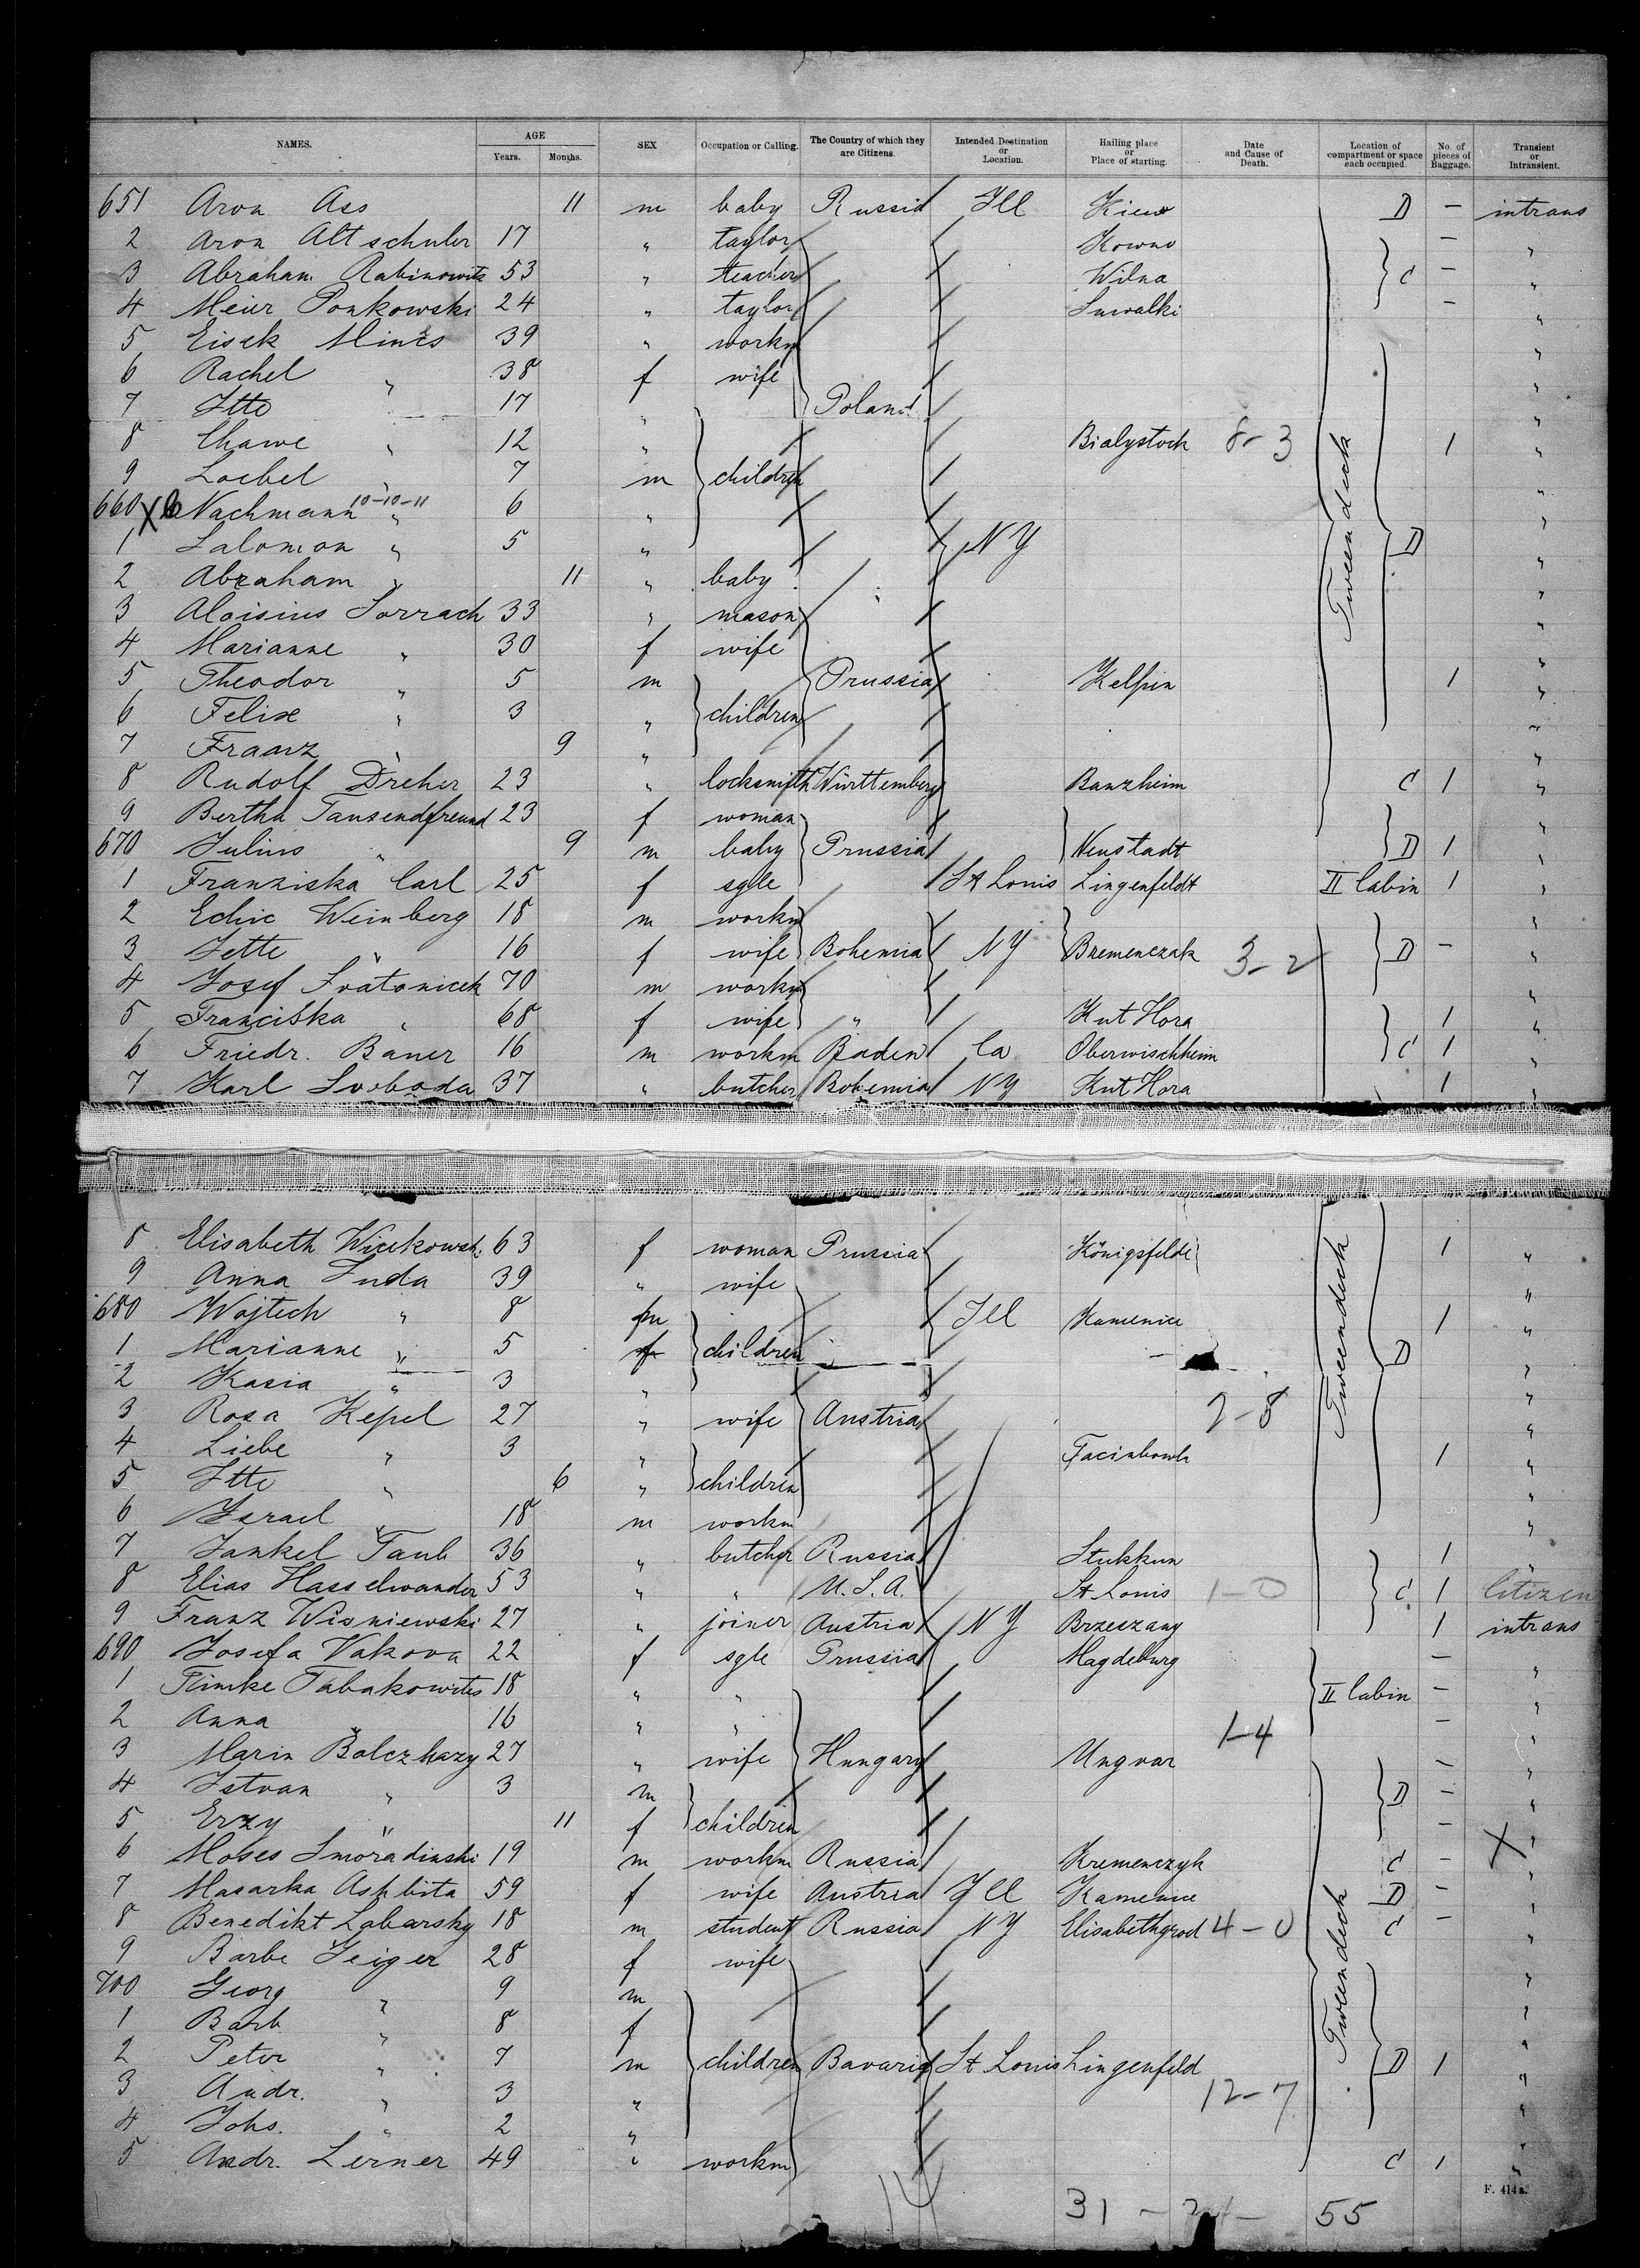 NAMES. AGE Years. Months. SEX Occupation or Calling. The Country of which they are Citizens. Intended Destination or Location. Hailing place or Place of starting. Date and Cause of Death. Location of compartment or space each occupied. No. of pieces of Baggage. Transient or Intransient.
651 Aron Ass 11 m baby Russia Ill Kiew D – intrans
2 Aron Altschuler 17 " taylor Kowno – "
3 Abraham Rabinowitz 53 " teacher Wilna C – "
4 Meier Ponkowski 24 " taylor Suwalki – "
5 Eisek Mines 39 " workm "
6 Rachel " 38 f wife "
7 Itte 17 " Poland "
8 Chawe " 12 " Bialystock 8-3 1 "
9 Loebel " 7 m children "
660 X Nachmann 10-10-11 " 6 " "
1 Salomon " 5 " NY Tweendeck D "
2 Abraham " 11 " baby "
3 Aloisius Sorrach 33 " mason "
4 Marianne " 30 f wife "
5 Theodor " 5 m Prussia Kelpin 1 "
6 Felix " 3 " children "
7 Franz " 9 " "
8 Rudolf Dreher 23 " locksmith Württemberg Banzheim C 1 "
9 Bertha Tausendfreund 23 f woman "
670 Julius " 9 m baby Prussia Neustadt D 1 "
1 Franziska Carl 25 f sgle St Louis Lingenfeldt II Cabin 1 "
2 Edic Weinberg 18 m workm "
3 Jette " 16 f wife Bohemia NY Bremenczak 3-2 D – "
4 Josef Svatonicek 70 m workm "
5 Franciska " 68 f wife " Kut Hora 1 "
6 Friedr. Baner 16 m workm Baden Ca Oberwischheim C 1 "
7 Karl Svoboda 37 " butcher Bohemia NY Kut Hora 1 "
8 Elisabeth Wiekowsk. 63 f woman Prussia Königsfelde 1 "
9 Anna Suda 39 " wife "
680 Wojtech " 8 m Ill Kamenice 1 "
1 Marianne " 5 f children Tweendeck D "
2 Kasia " 3 " "
3 Rosa Kepel 27 " wife Austria 2-8 "
4 Liebe " 3 " 1 "
5 Itte " 6 " children "
6 Israel " 18 m workm "
7 Jankel Taub 36 " butcher Russia Stukkun 1 "
8 Elias Hasselwander 53 " " U.S.A. St Louis 1-0 C 1 Citizen
9 Franz Wisniewski 27 " joiner Austria NY Brzeszany 1 intrans
690 Josefa Vakova 22 f sgle Prussia Magdeburg – "
1 Rimke Tabakowites 18 " " II Cabin – "
2 Anna " 16 " " 1-4 – "
3 Maria Bolczhazy 27 " wife Hungary Ungvar – "
4 Istvan " 3 m D – "
5 Erzy " 11 f children – "
6 Moses Smoradinski 19 m workm Russia Kremenczyk C – X "
7 Masarka Ashbita 59 f wife Austria Ill Kamenice D – "
8 Benedikt Labarsky 18 m student Russia NY Elisabethgrod 4-0 C – "
9 Barbe Geiger 28 f wife "
700 Georg " 9 m "
1 Barb " 8 f Tweendeck "
2 Peter " 7 m children Bavaria St Louis Lingenfeld D 1 "
3 Andr. " 3 " 12-7 "
4 Johs. " 2 " "
5 Andr. Lerner 49 " workm C 1 "
F. 414a.
31 – 24 – 55